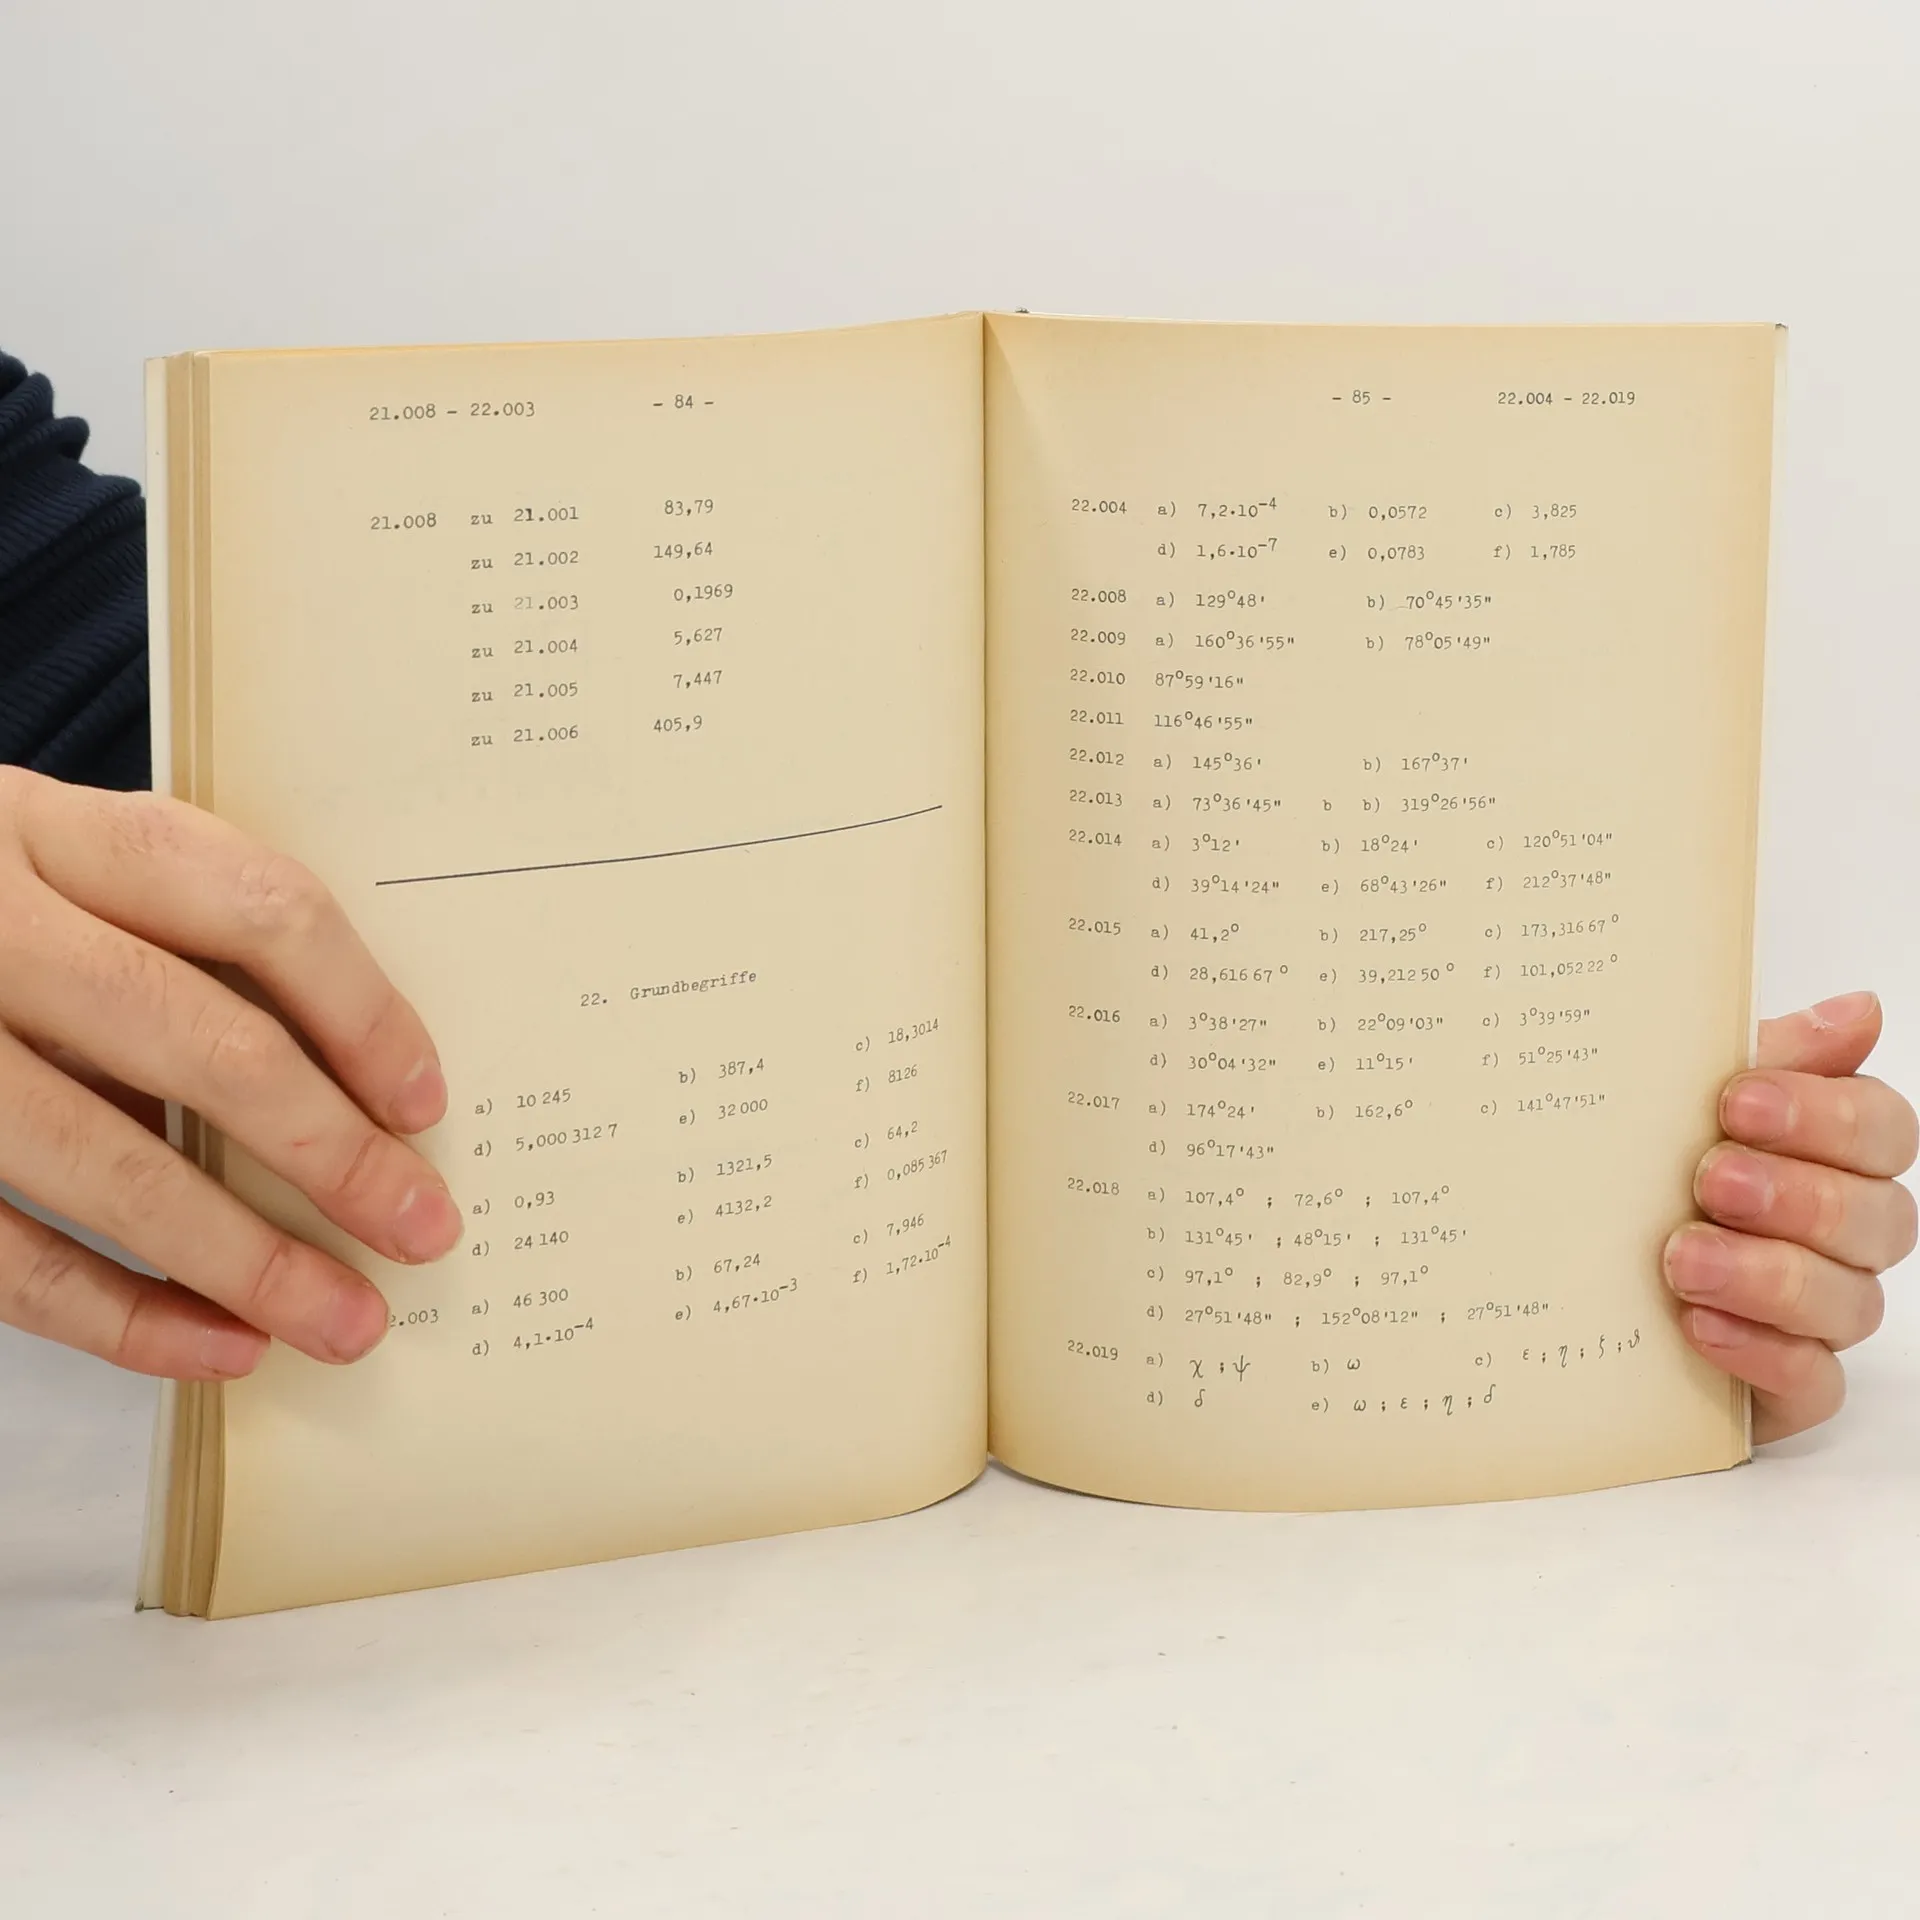 21.008 - 22.003 - 84 -
21.008 zu 21.001 83,79
zu 21.002 149,64
zu 21.003 0,1969
zu 21.004 5,627
zu 21.005 7,447
zu 21.006 405,9
22. Grundbegriffe
a) 10 245 b) 387,4 c) 18,3014
d) 5,000 312 7 e) 32 000 f) 8126
a) 0,93 b) 1321,5 c) 64,2
d) 24 140 e) 4132,2 f) 0,085 367
2.003 a) 46 300 b) 67,24 c) 7,946
d) 4,1·10⁻⁴ e) 4,67·10⁻³ f) 1,72·10⁻⁴
- 85 - 22.004 - 22.019
22.004 a) 7,2·10⁻⁴ b) 0,0572 c) 3,825
d) 1,6·10⁻⁷ e) 0,0783 f) 1,785
22.008 a) 129°48' b) 70°45'35"
22.009 a) 160°36'55" b) 78°05'49"
22.010 87°59'16"
22.011 116°46'55"
22.012 a) 145°36' b) 167°37'
22.013 a) 73°36'45" b b) 319°26'56"
22.014 a) 3°12' b) 18°24' c) 120°51'04"
d) 39°14'24" e) 68°43'26" f) 212°37'48"
22.015 a) 41,2° b) 217,25° c) 173,316 67°
d) 28,616 67° e) 39,212 50° f) 101,052 22°
22.016 a) 3°38'27" b) 22°09'03" c) 3°39'59"
d) 30°04'32" e) 11°15' f) 51°25'43"
22.017 a) 174°24' b) 162,6° c) 141°47'51"
d) 96°17'43"
22.018 a) 107,4° ; 72,6° ; 107,4°
b) 131°45' ; 48°15' ; 131°45'
c) 97,1° ; 82,9° ; 97,1°
d) 27°51'48" ; 152°08'12" ; 27°51'48"
22.019 a) χ ; ψ b) ω c) ε ; η ; ζ ; ϑ
d) δ e) ω ; ε ; η ; δ